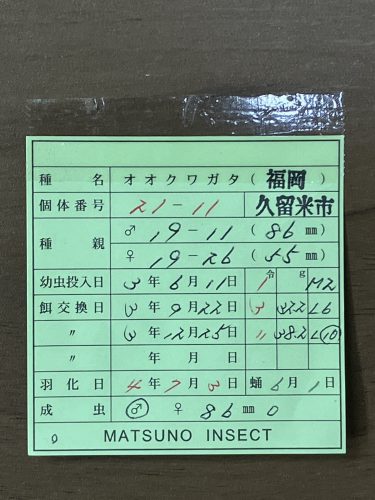 種 名 オオクワガタ (福岡)
個体番号 21-11 久留米市
種 親 ♂ 19-11 (86 mm)
♀ 19-26 (55 mm)
幼虫投入日 3年6月11日 1令 g M2
餌交換日 3年9月22日 3 32.2 L6
〃 3年12月25日 〃 38.2 L⑩
〃 年 月 日
羽化日 4年7月3日 蛹6月1日
成 虫 ♂ ♀ 86mm 0
0 MATSUNO INSECT